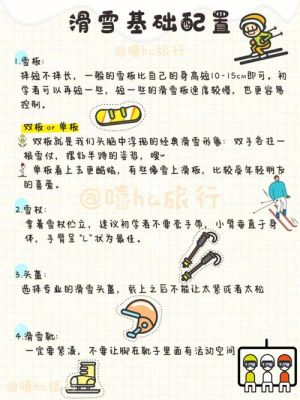 滑雪基础配置
@嘻ha旅行
1.雪板:
择短不择长，一般的雪板比自己的身高短10-15cm即可。初
学者可以再短一些，短一些的滑雪板速度较慢，也更容易
控制。
双板 or 单板
双板就是我们头脑中浮现的经典滑雪形象：双手各拄一
根雪仗，摆弓半蹲的姿势，嗖~
单板看上去更酷啦，有些像雪上滑板，比较受年轻朋友
的喜爱。
@嘻ha旅行
2.雪杖:
拿着雪杖伫立，建议初学者不要套手带，小臂垂直于身
体，手臂呈"L"状为最佳。
3.头盖:
选择专业的滑雪头盔，戴上之后不能让太紧或者太松
4.滑雪靴:
一定要紧凑，不要让脚在靴子里面有活动空间
@嘻ha旅行